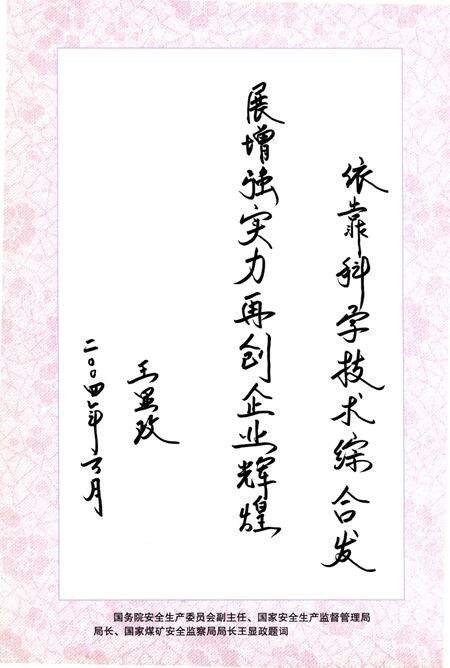 依靠科学技术综合发
展增强实力再创企业辉煌
王显政
二〇〇四年六月
国务院安全生产委员会副主任、国家安全生产监督管理局
局长、国家煤矿安全监察局局长王显政题词